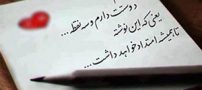 دوستت دارم و سه نقطه...
یعنی که این نوشته
تا همیشه امتداد خواهد داشت...